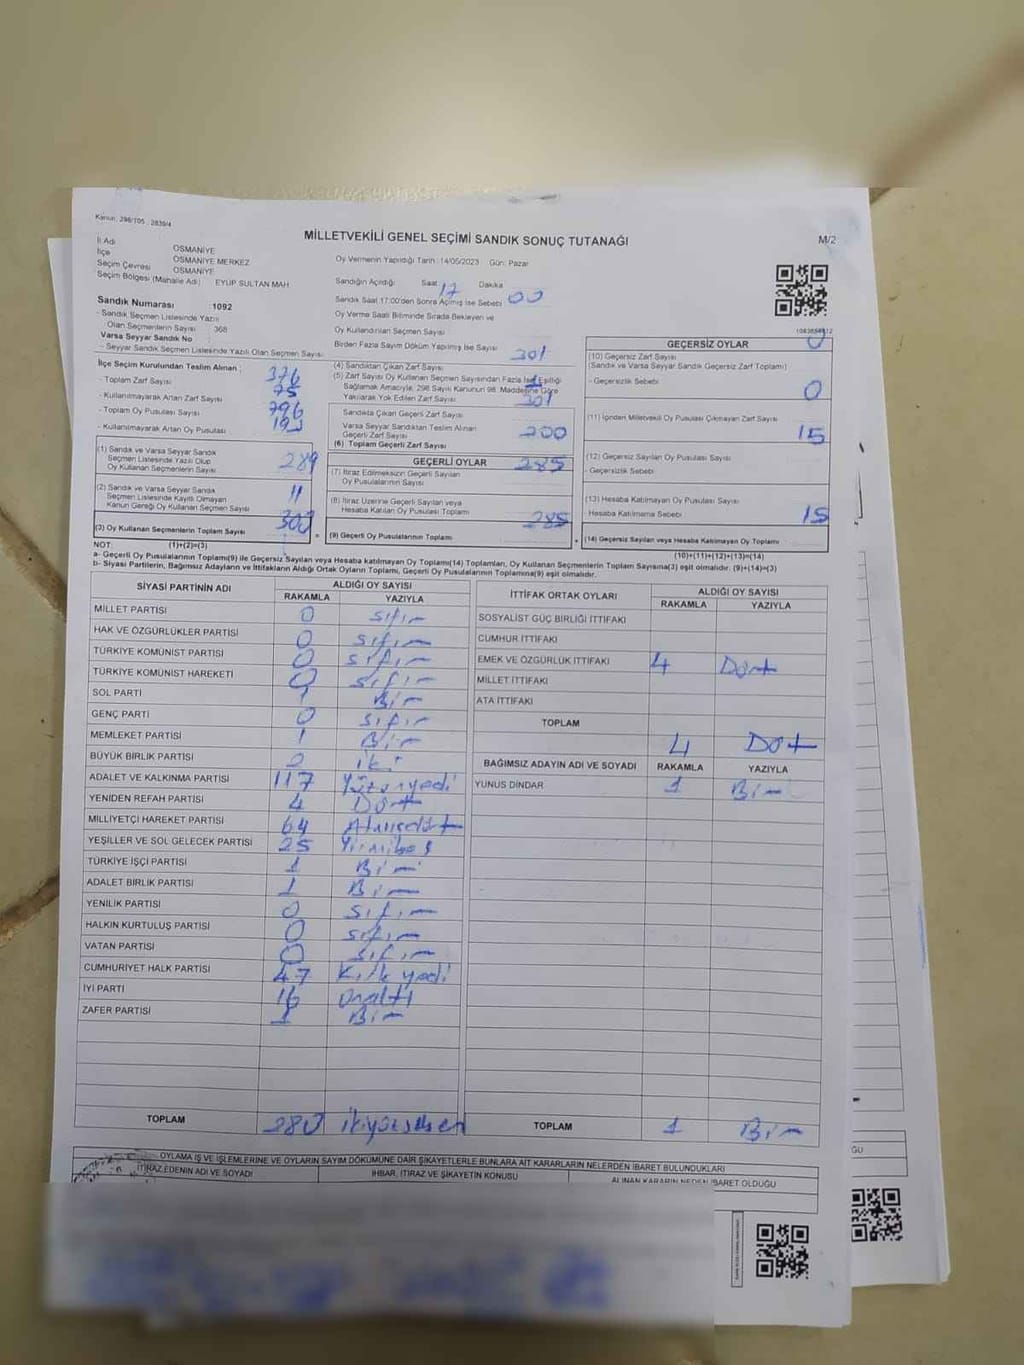 Kanun: 298/105 , 2839/4
MİLLETVEKİLİ GENEL SEÇİMİ SANDIK SONUÇ TUTANAĞI
M/2
İl Adı OSMANİYE
İlçe OSMANİYE MERKEZ
Seçim Çevresi OSMANİYE
Seçim Bölgesi (Mahalle Adı) : EYÜP SULTAN MAH
Sandık Numarası : 1092
- Sandık Seçmen Listesinde Yazılı
Olan Seçmenlerin Sayısı : 368
Varsa Seyyar Sandık No
- Seyyar Sandık Seçmen Listesinde Yazılı Olan Seçmen Sayısı:
Oy Vermenin Yapıldığı Tarih :14/05/2023 Gün: Pazar
Sandığın Açıldığı Saat 17 Dakika 00
Sandık Saat 17:00'den Sonra Açılmış İse Sebebi
Oy Verme Saati Bitiminde Sırada Bekleyen ve
Oy Kullandırılan Seçmen Sayısı
Birden Fazla Sayım Döküm Yapılmış İse Sayısı
İlçe Seçim Kurulundan Teslim Alınan :
- Toplam Zarf Sayısı 376
- Kullanılmayarak Artan Zarf Sayısı 75
- Toplam Oy Pusulası Sayısı 796
- Kullanılmayarak Artan Oy Pusulası
(1) Sandık ve Varsa Seyyar Sandık
Seçmen Listesinde Yazılı Olup
Oy Kullanan Seçmenlerin Sayısı 289
(2) Sandık ve Varsa Seyyar Sandık
Seçmen Listesinde Kayıtlı Olmayan
Kanun Gereği Oy Kullanan Seçmenlerin Sayısı 11
(3) Oy Kullanan Seçmenlerin Toplam Sayısı 300
(4) Sandıktan Çıkan Zarf Sayısı 301
(5) Zarf Sayısı Oy Kullanan Seçmen Sayısından Fazla İse Eşitliği
Sağlamak Amacıyla, 298 Sayılı Kanunun 98. Maddesine Göre
Yakılarak Yok Edilen Zarf Sayısı 1
Sandıkta Çıkan Geçerli Zarf Sayısı 301
Varsa Seyyar Sandıktan Teslim Alınan
Geçerli Zarf Sayısı
(6) Toplam Geçerli Zarf Sayısı
GEÇERLİ OYLAR
(7) İtiraz Edilmeksizin Geçerli Sayılan
Oy Pusulasının Sayısı 285
(8) İtiraz Üzerine Geçerli Sayılan veya
Hesaba Katılan Oy Pusulası Toplamı
(9) Geçerli Oy Pusulalarının Toplamı 285
GEÇERSİZ OYLAR
(10) Geçersiz Zarf Sayısı 0
(Sandık ve Varsa Seyyar Sandık Geçersiz Zarf Toplamı)
- Geçersizlik Sebebi
(11) İçinden Milletvekili Oy Pusulası Çıkmayan Zarf Sayısı 0
(12) Geçersiz Sayılan Oy Pusulası Sayısı 15
- Geçersizlik Sebebi
(13) Hesaba Katılmayan Oy Pusulası Sayısı
Hesaba Katılmama Sebebi
(14) Geçersiz Sayılan veya Hesaba Katılmayan Oy Toplamı 15
NOT: (1)+(2)=(3)
(10)+(11)+(12)+(13)=(14)
a- Geçerli Oy Pusulalarının Toplamı(9) ile Geçersiz Sayılan veya Hesaba katılmayan Oy Toplamı(14) Toplamları, Oy Kullanan Seçmenlerin Toplam Sayısına(3) eşit olmalıdır. (9)+(14)=(3)
b- Siyasi Partilerin, Bağımsız Adayların ve İttifakların Aldığı Ortak Oyların Toplamı, Geçerli Oy Pusulalarının Toplamına(9) eşit olmalıdır.
SİYASİ PARTİNİN ADI ALDIĞI OY SAYISI
RAKAMLA YAZIYLA
MİLLET PARTİSİ 0 sıfır
HAK VE ÖZGÜRLÜKLER PARTİSİ 0 sıfır
TÜRKİYE KOMÜNİST PARTİSİ 0 sıfır
TÜRKİYE KOMÜNİST HAREKETİ 0 sıfır
SOL PARTİ 1 Bir
GENÇ PARTİ 0 sıfır
MEMLEKET PARTİSİ 1 Bir
BÜYÜK BİRLİK PARTİSİ 2 iki
ADALET VE KALKINMA PARTİSİ 117 Yüzonyedi
YENİDEN REFAH PARTİSİ 4 Dört
MİLLİYETÇİ HAREKET PARTİSİ 64 Atmışdört
YEŞİLLER VE SOL GELECEK PARTİSİ 25 Yirmibeş
TÜRKİYE İŞÇİ PARTİSİ 1 Bir
ADALET BİRLİK PARTİSİ 1 Bir
YENİLİK PARTİSİ 0 sıfır
HALKIN KURTULUŞ PARTİSİ 0 sıfır
VATAN PARTİSİ 0 sıfır
CUMHURİYET HALK PARTİSİ 47 Kırk yedi
İYİ PARTİ 16 Onaltı
ZAFER PARTİSİ 1 Bir
TOPLAM 280 ikiyüzseksen
İTTİFAK ORTAK OYLARI ALDIĞI OY SAYISI
RAKAMLA YAZIYLA
SOSYALİST GÜÇ BİRLİĞİ İTTİFAKI
CUMHUR İTTİFAKI
EMEK VE ÖZGÜRLÜK İTTİFAKI 4 Dört
MİLLET İTTİFAKI
ATA İTTİFAKI
TOPLAM 4 Dört
BAĞIMSIZ ADAYIN ADI VE SOYADI RAKAMLA YAZIYLA
YUNUS DİNDAR 1 Bir
TOPLAM 1 Bir
OYLAMA İŞ VE İŞLEMLERİNE VE OYLARIN SAYIM DÖKÜMÜNE DAİR ŞİKAYETLERLE BUNLARA AİT KARARLARIN NELERDEN İBARET BULUNDUKLARI
İTİRAZ EDENİN ADI VE SOYADI İHBAR, İTİRAZ VE ŞİKAYETİN KONUSU ALINAN KARARIN NEDEN İBARET OLDUĞU